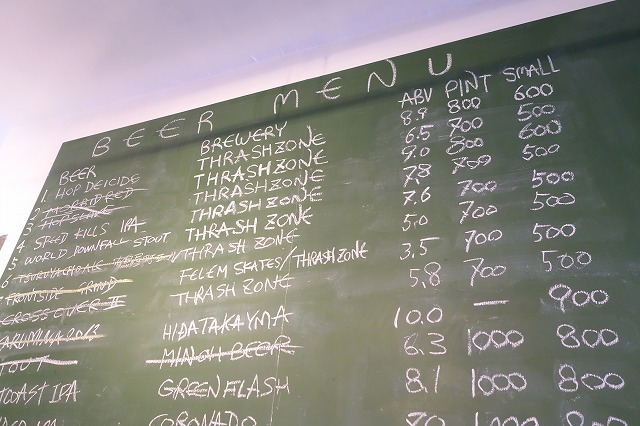 BEER MENU
BEER BREWERY ABV PINT SMALL
1. HOP DEICIDE THRASHZONE 8.9 800 600
2 MORBID RED THRASHZONE 6.5 700 500
3 THRASHZONE 9.0 800 600
4 SPEED KILLS IPA THRASHZONE 7.8 700 500
5 WORLD DOWNFALL STOUT THRASH ZONE 7.6 700 500
6 THRASH ZONE 5.0 700 500
FRONTSIDE GRIND FELEM SKATES/THRASHZONE 3.5 700 500
CROSS OVER II THRASH ZONE 5.8 700 500
HIDATAKAYMA 10.0 — 900
TOUT MINOH BEER 8.3 1000 800
IPA GREENFLASH 8.1 1000 800
IPA CORONADO